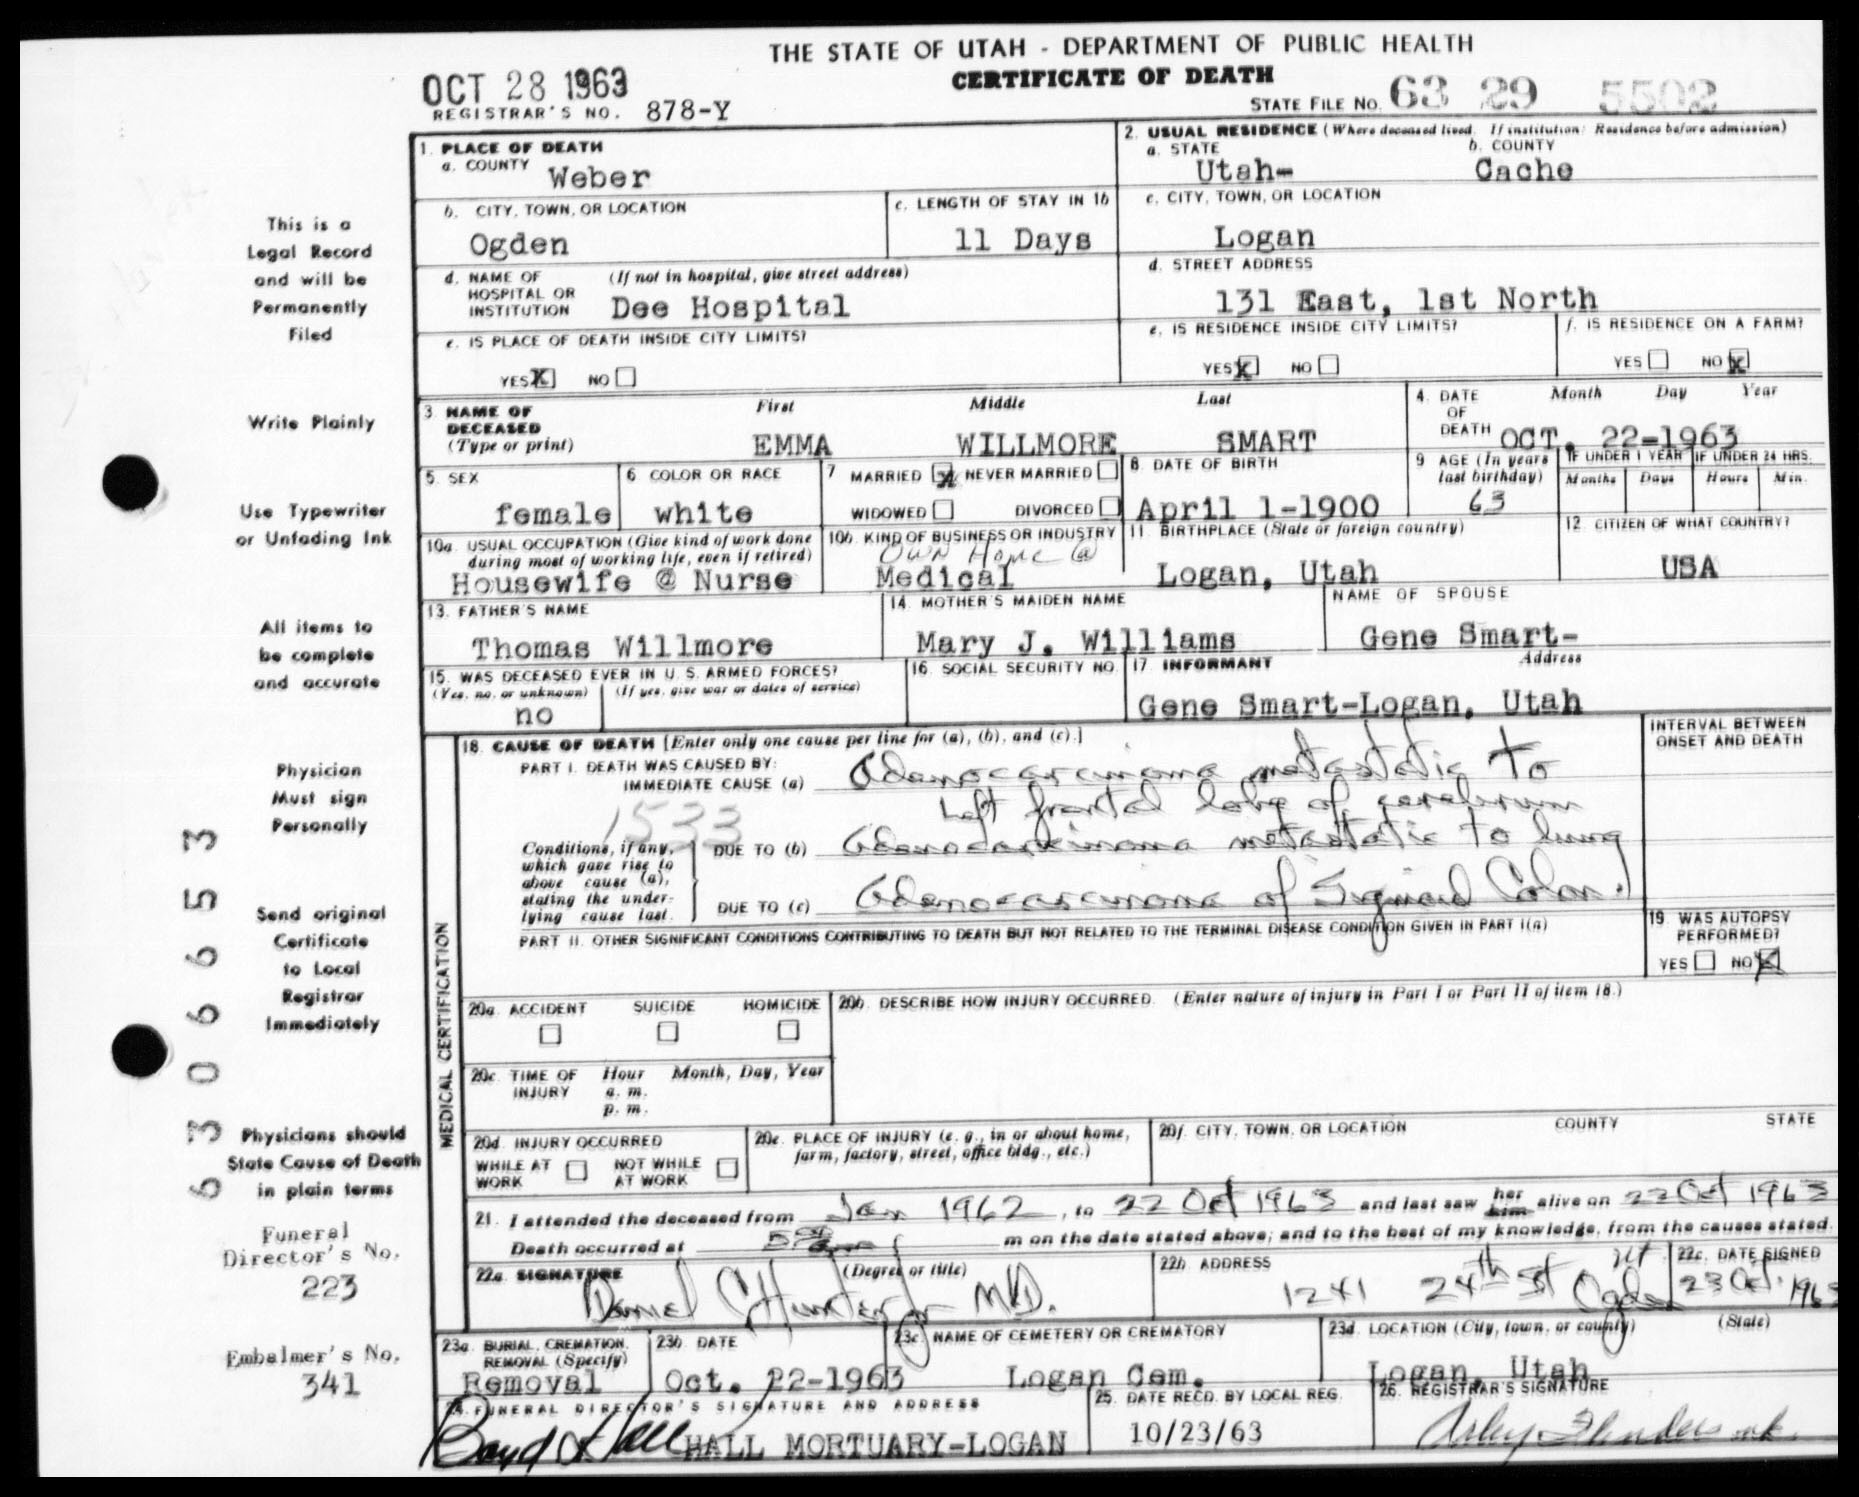 THE STATE OF UTAH - DEPARTMENT OF PUBLIC HEALTH
CERTIFICATE OF DEATH
OCT 28 1963
REGISTRAR'S NO. 878-Y
STATE FILE NO. 63 29 5502
1. PLACE OF DEATH
a. COUNTY Weber
2. USUAL RESIDENCE (Where deceased lived. If institution: Residence before admission)
a. STATE Utah- b. COUNTY Cache
b. CITY, TOWN, OR LOCATION Ogden
c. LENGTH OF STAY IN 1b 11 Days
c. CITY, TOWN, OR LOCATION Logan
d. NAME OF HOSPITAL OR INSTITUTION (If not in hospital, give street address) Dee Hospital
d. STREET ADDRESS 131 East, 1st North
e. IS PLACE OF DEATH INSIDE CITY LIMITS?
YES X NO
e. IS RESIDENCE INSIDE CITY LIMITS?
YES X NO
f. IS RESIDENCE ON A FARM?
YES NO X
3. NAME OF DECEASED (Type or print)
First Middle Last
EMMA WILLMORE SMART
4. DATE OF DEATH Month Day Year
OCT. 22-1963
5. SEX female
6 COLOR OR RACE white
7 MARRIED X NEVER MARRIED
WIDOWED DIVORCED
8. DATE OF BIRTH April 1-1900
9 AGE (In years last birthday) 63
IF UNDER 1 YEAR Months Days
IF UNDER 24 HRS. Hours Min.
10a. USUAL OCCUPATION (Give kind of work done during most of working life, even if retired)
Housewife @ Nurse
10b. KIND OF BUSINESS OR INDUSTRY
OWN Home @
Medical
11. BIRTHPLACE (State or foreign country)
Logan, Utah
12. CITIZEN OF WHAT COUNTRY?
USA
13. FATHER'S NAME
Thomas Willmore
14. MOTHER'S MAIDEN NAME
Mary J. Williams
NAME OF SPOUSE
Gene Smart-
15. WAS DECEASED EVER IN U. S. ARMED FORCES?
(Yes, no, or unknown) (If yes, give war or dates of service)
no
16. SOCIAL SECURITY NO.
17. INFORMANT Address
Gene Smart-Logan, Utah
MEDICAL CERTIFICATION
18. CAUSE OF DEATH [Enter only one cause per line for (a), (b), and (c).]
INTERVAL BETWEEN ONSET AND DEATH
PART I. DEATH WAS CAUSED BY:
IMMEDIATE CAUSE (a) Adenocarcinoma metastatic to
Left frontal lobe of cerebrum
1533
Conditions, if any, which gave rise to above cause (a), stating the under- lying cause last.
DUE TO (b) Adenocarcinoma metastatic to lung
DUE TO (c) Adenocarcinoma of Sigmoid Colon.
PART II. OTHER SIGNIFICANT CONDITIONS CONTRIBUTING TO DEATH BUT NOT RELATED TO THE TERMINAL DISEASE CONDITION GIVEN IN PART I(a)
19. WAS AUTOPSY PERFORMED?
YES NO X
20a. ACCIDENT SUICIDE HOMICIDE
20b. DESCRIBE HOW INJURY OCCURRED. (Enter nature of injury in Part I or Part II of item 18.)
20c. TIME OF INJURY Hour Month, Day, Year
a. m.
p. m.
20d. INJURY OCCURRED
WHILE AT WORK NOT WHILE AT WORK
20e. PLACE OF INJURY (e. g., in or about home, farm, factory, street, office bldg., etc.)
20f. CITY, TOWN, OR LOCATION COUNTY STATE
21. I attended the deceased from Jan 1962, to 22 Oct 1963 and last saw her him alive on 22 Oct 1963
Death occurred at m on the date stated above; and to the best of my knowledge, from the causes stated.
22a. SIGNATURE (Degree or title)
Daniel C Hunter Jr MD.
22b. ADDRESS
1241 24th St Ogden Ut
22c. DATE SIGNED
23 Oct. 1963
23a. BURIAL, CREMATION, REMOVAL (Specify)
Removal
23b. DATE
Oct. 22-1963
23c. NAME OF CEMETERY OR CREMATORY
Logan Cem.
23d. LOCATION (City, town, or county) (State)
Logan, Utah
24. FUNERAL DIRECTOR'S SIGNATURE AND ADDRESS
Hall HALL MORTUARY-LOGAN
25. DATE RECD. BY LOCAL REG.
10/23/63
26. REGISTRAR'S SIGNATURE
This is a
Legal Record
and will be
Permanently
Filed
Write Plainly
Use Typewriter
or Unfading Ink
All items to
be complete
and accurate
Physician
Must sign
Personally
Send original
Certificate
to Local
Registrar
Immediately
Physicians should
State Cause of Death
in plain terms
Funeral
Director's No.
223
Embalmer's No.
341
63066553